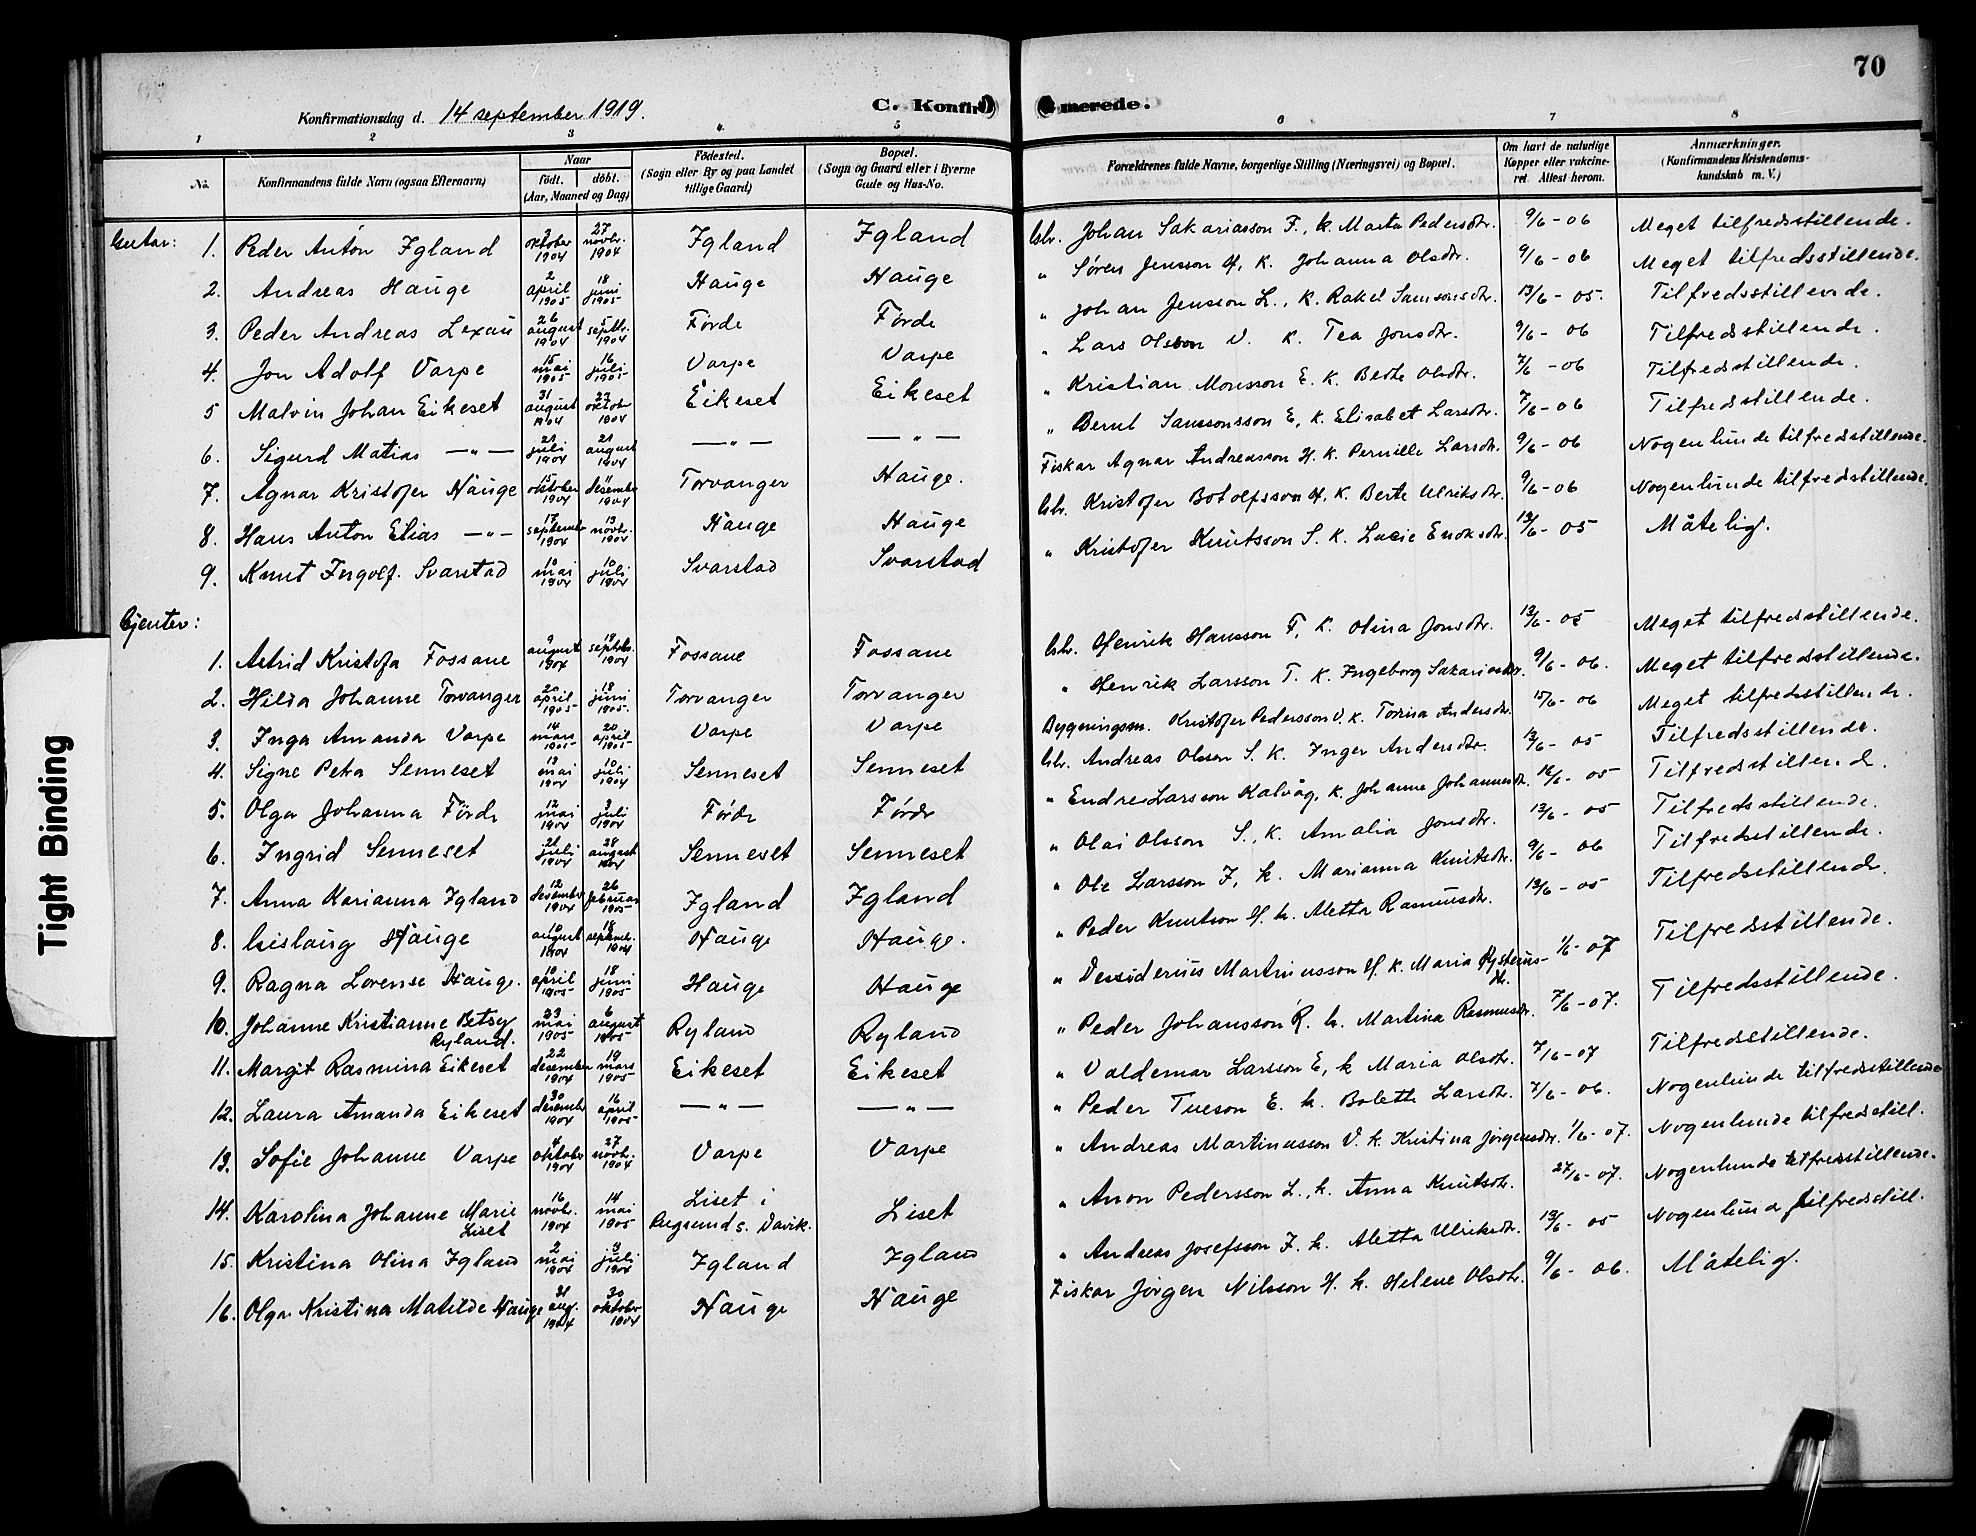 70
Konfirmationsdag d. 14 september 1919.
C. Konfir merede.
1 2 3 4 5 6 7 8
No. Konfirmandens fulde Navn (ogsaa Efternavn) Naar født. døbt. (Aar, Maaned og Dag) Födested. (Sogn eller By og paa Landet tillige Gaard) Bopæl. (Sogn og Gaard eller i Byerne Gade og Hus-No. Forældrenes fulde Navne, borgerlige Stilling (Næringsvei) og Bopæl. Om havt de naturlige Kopper eller vakcineret. Attest herom. Anmærkninger. (Konfirmandens Kristendomskundskab m. V.)
Gutar: 1. Peder Anton Igland 3 oktober 1904 27 novbr. 1904 Igland Igland Gbr. Johan Sakariasson I., k. Marta Pedersdtr. 9/6 - 06 Meget tilfredsstillende.
2. Andreas Hauge 2 april 1905 18 juni 1905 Hauge Hauge " Søren Jensson H, k. Johanna Olsdtr. 9/6 - 06 Meget tilfredsstillende.
3. Peder Andreas Lexau 26 august 1904 5 septbr. 1904 Förde Förde " Johan Jensson L., k. Rakel Samsonsdtr. 13/6 - 05. Tilfredsstillende.
4. Jon Adolf Varpe 15 mai 1905 16 juli 1905 Varpe Varpe " Lars Olsson V. k. Tea Jonsdtr. 9/6 - 06 Tilfredsstillende.
5 Malvin Johan Eikeset 31 august 1904 23 oktober 1904 Eikeset Eikeset " Kristian Monsson E. k. Berte Olsdtr. 7/6 - 06 Tilfredsstillende.
6. Sigurd Matias — " — 21 juli 1904 21 august 1904 — " — — " — " Bernt Samsonsson E, k. Elisabet Larsdtr. 7/6 - 06 Tilfredsstillende.
7. Agnar Kristofer Hauge 15 oktober 1904 11 desember 1904 Torvanger Hauge. Fiskar Agnar Andreasson H. k. Pernille Larsdtr. 9/6 - 06 Nogenlunde tilfredsstillende.
8. Hans Anton Elias — " — 17 september 1904 13 novbr. 1904 Hauge Hauge Gbr. Kristofer Botolfsson H, k. Berte Ulriksdtr. 9/6 - 06 Nogenlunde tilfredsstillende.
9. Knut Ingolf. Svarstad 10 mai 1904 10 juli 1904 Svarstad Svarstad " Kristofer Knutsson S. k. Lucie Enoksdtr. 13/6 - 05 Måtelig.
Gjenter:
1. Astrid Kristofa Fossane 9 august 1904 18 septbr. 1904 Fossane Fossane Gbr. Henrik Hansson F, k. Olina Jonsdtr. 13/6 - 05 Meget tilfredsstillende.
2. Hilda Johanne Torvanger 20 april 1905 18 juni 1905. Torvanger Torvanger " Henrik Larsson T. k. Ingeborg Sakariasdtr. 9/6 - 06. Meget tilfredsstillende.
3. Inga Amanda Varpe 14 mars 1905 20 april 1905 Varpe Varpe Bygningssn. Kristofer Pedersson V. k. Tomina Andersdtr. 15/6 - 06 Meget tilfredsstillende.
4. Signe Petra Senneset 13 mai 1904 10 juli 1904 Senneset Senneset Gbr. Andreas Olsson S. k. Inger Andersdtr. 13/6 - 05 Tilfredsstillende.
5. Olga Johanna Förde 12 mai 1904 3 juli 1904 Förde Förde " Endre Larsson Kalvåg, k. Johanne Johannesdtr. 16/6 - 05 Tilfredsstillende.
6. Ingrid Senneset 21 juli 1904 28 august 1904 Senneset Senneset " Olai Olsson S., k. Amalia Jonsdtr. 13/6 - 05 Tilfredsstillende.
7. Anna Karianna Igland 12 desember 1904 26 februar 1905 Igland Igland " Ole Larsson I, k. Marianna Knutsdtr. 9/6 - 06 Tilfredsstillende.
8. Gislaug Hauge 10 august 1904 18 septemb. 1904 Hauge Hauge. " Peder Knutson H. k. Aletta Rasmusdtr. 13/6 - 05 Tilfredsstillende.
9. Ragna Lovense Hauge. 10 april 1905 18 juni 1905 Hauge Hauge " Dessiderius Martinusson H. k. Maria Kysterusdtr. 1/6 - 07 Tilfredsstillende.
10. Johanne Kristianne Betsey Ryland. 23 mai 1905 6 august 1905 Ryland Ryland " Peder Johansson R. k. Martina Rasmusdtr. 7/6 - 07. Tilfredsstillende.
11. Margit Rasmina Eikeset 22 desember 1904 19 mars 1905 Eikeset Eikeset " Valdemar Larsson E, k Maria Olsdtr. 7/6 - 07 Tilfredsstillende.
12. Laura Amanda Eikeset 30 desember 1904 16 april 1905 — " — — " — " Peder Tueson E. k. Bolette Larsdtr. 7/6 - 06. Nogenlunde tilfredsstillende
13. Sofie Johanne Varpe 4 oktober 1904 27 novbr. 1904 Varpe Varpe " Andreas Martinusson V. k. Kristina Jørgensdtr. 1/6 - 07. Nogenlunde tilfredsstill.
14. Karolina Johanne Marie Liset 16 novbr. 1904 14 mai 1905 Liset i Rugsund s. Davik. Liset " Anon Pedersson L., k. Anna Knutsdtr. 27/6 - 07. Nogenlunde tilfredsstillende.
15. Kristina Olina Igland 2 mai 1904 3 juli 1904 Igland Igland " Andreas Josefsson I. k. Aletta Ulriksdtr. 13/6 - 05 Nogenlunde tilfredsstill.
16. Olga Kristina Matilde Hauge 31 aug. 1904 30 oktober 1904 Hauge Hauge Fiskar Jörgen Nilsson H. k. Helene Olsdtr. 9/6 - 06. Måtelig.
Tight Binding